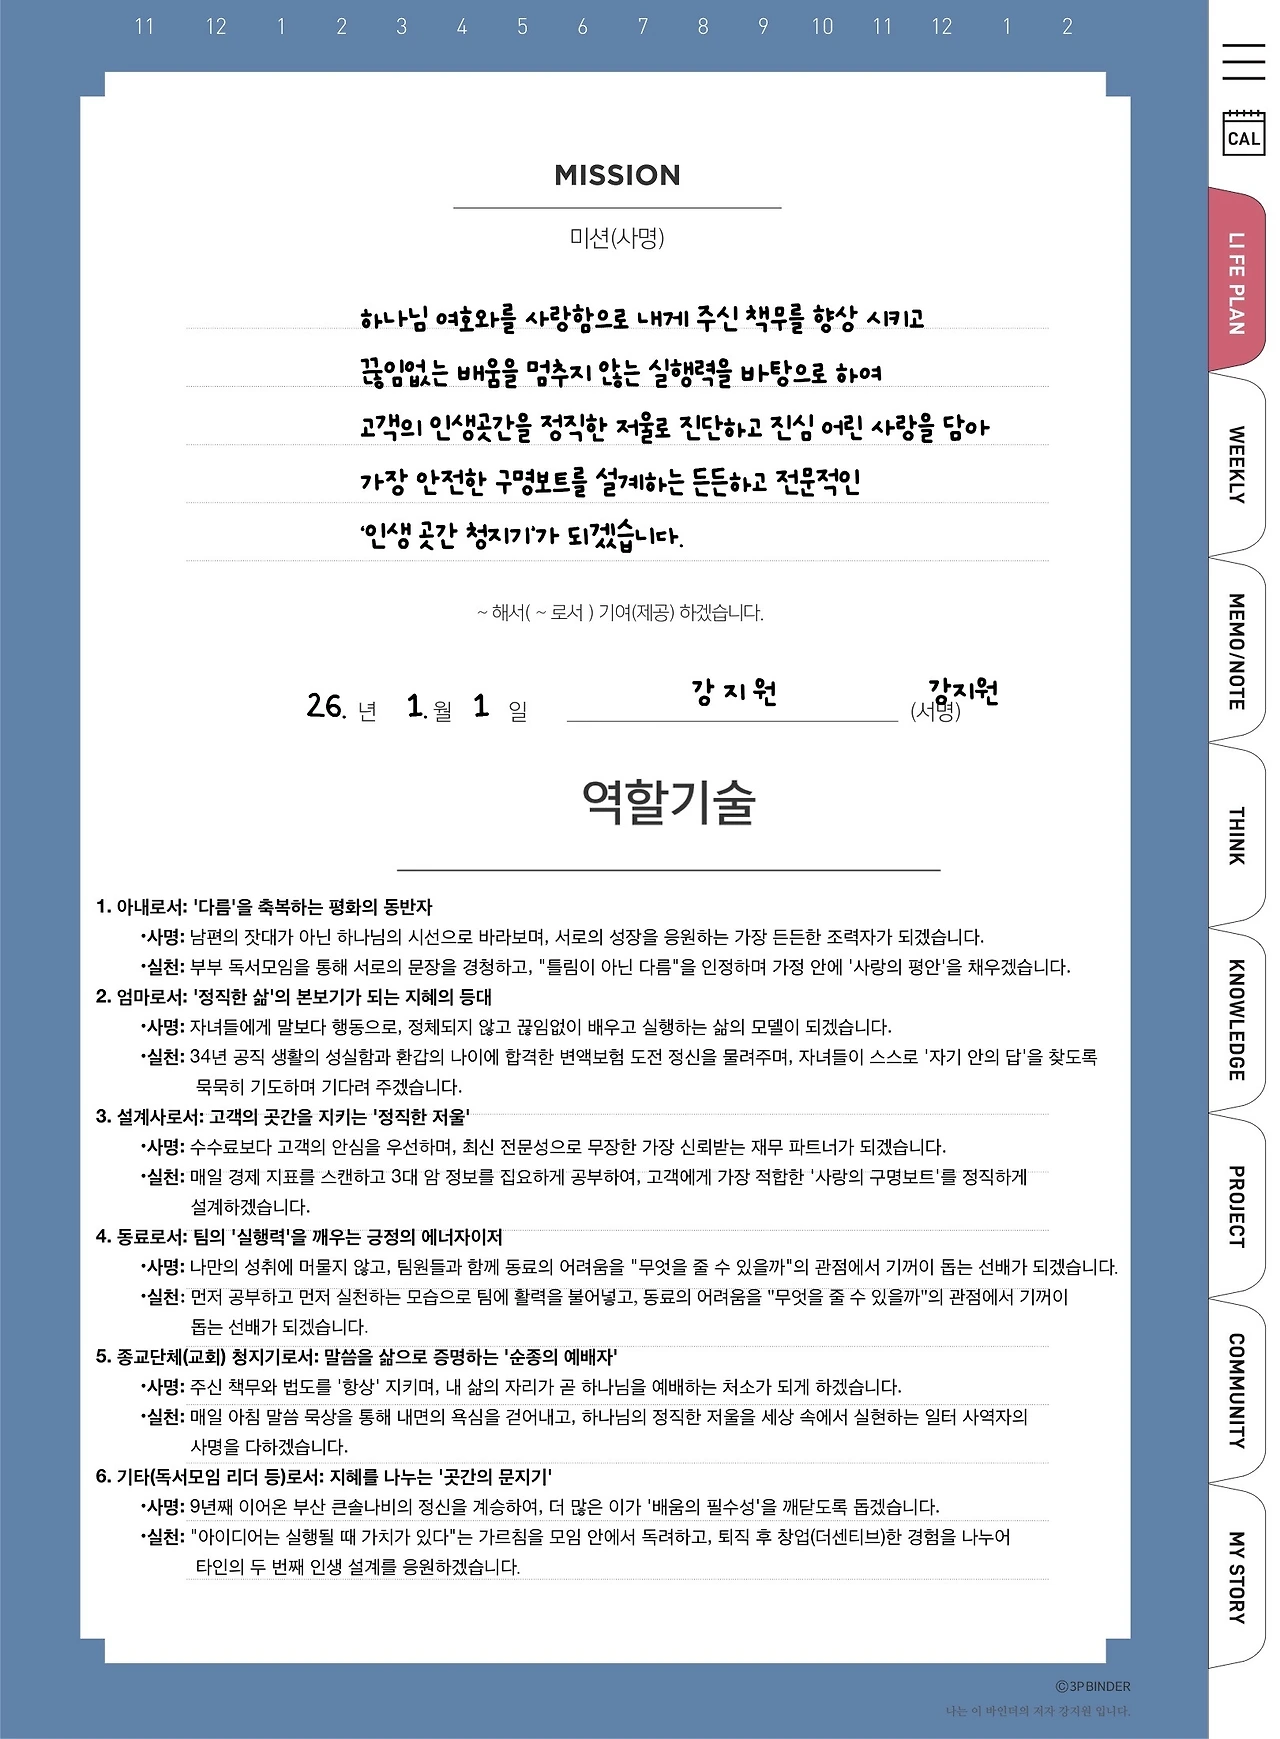 11 12 1 2 3 4 5 6 7 8 9 10 11 12 1 2
CAL
MISSION
미션(사명)
하나님 여호와를 사랑함으로 내게 주신 책무를 향상 시키고
끊임없는 배움을 멈추지 않는 실행력을 바탕으로 하여
고객의 인생곳간을 정직한 저울로 진단하고 진심 어린 사랑을 담아
가장 안전한 구명보트를 설계하는 든든하고 전문적인
'인생 곳간 청지기'가 되겠습니다.
~ 해서( ~ 로서 ) 기여(제공) 하겠습니다.
26. 년 1. 월 1 일 강 지 원 (서명) 강지원
역할기술
1. 아내로서: '다름'을 축복하는 평화의 동반자
•사명: 남편의 잣대가 아닌 하나님의 시선으로 바라보며, 서로의 성장을 응원하는 가장 든든한 조력자가 되겠습니다.
•실천: 부부 독서모임을 통해 서로의 문장을 경청하고, "틀림이 아닌 다름"을 인정하며 가정 안에 '사랑의 평안'을 채우겠습니다.
2. 엄마로서: '정직한 삶'의 본보기가 되는 지혜의 등대
•사명: 자녀들에게 말보다 행동으로, 정체되지 않고 끊임없이 배우고 실행하는 삶의 모델이 되겠습니다.
•실천: 34년 공직 생활의 성실함과 환갑의 나이에 합격한 변액보험 도전 정신을 물려주며, 자녀들이 스스로 '자기 안의 답'을 찾도록
묵묵히 기도하며 기다려 주겠습니다.
3. 설계사로서: 고객의 곳간을 지키는 '정직한 저울'
•사명: 수수료보다 고객의 안심을 우선하며, 최신 전문성으로 무장한 가장 신뢰받는 재무 파트너가 되겠습니다.
•실천: 매일 경제 지표를 스캔하고 3대 암 정보를 집요하게 공부하여, 고객에게 가장 적합한 '사랑의 구명보트'를 정직하게
설계하겠습니다.
4. 동료로서: 팀의 '실행력'을 깨우는 긍정의 에너자이저
•사명: 나만의 성취에 머물지 않고, 팀원들과 함께 동료의 어려움을 "무엇을 줄 수 있을까"의 관점에서 기꺼이 돕는 선배가 되겠습니다.
•실천: 먼저 공부하고 먼저 실천하는 모습으로 팀에 활력을 불어넣고, 동료의 어려움을 "무엇을 줄 수 있을까"의 관점에서 기꺼이
돕는 선배가 되겠습니다.
5. 종교단체(교회) 청지기로서: 말씀을 삶으로 증명하는 '순종의 예배자'
•사명: 주신 책무와 법도를 '항상' 지키며, 내 삶의 자리가 곧 하나님을 예배하는 처소가 되게 하겠습니다.
•실천: 매일 아침 말씀 묵상을 통해 내면의 욕심을 걷어내고, 하나님의 정직한 저울을 세상 속에서 실현하는 일터 사역자의
사명을 다하겠습니다.
6. 기타(독서모임 리더 등)로서: 지혜를 나누는 '곳간의 문지기'
•사명: 9년째 이어온 부산 큰솔나비의 정신을 계승하여, 더 많은 이가 '배움의 필수성'을 깨닫도록 돕겠습니다.
•실천: "아이디어는 실행될 때 가치가 있다"는 가르침을 모임 안에서 독려하고, 퇴직 후 창업(더센티브)한 경험을 나누어
타인의 두 번째 인생 설계를 응원하겠습니다.
©3P BINDER
나는 이 바인더의 저자 강지원 입니다.
LIFE PLAN
WEEKLY
MEMO/NOTE
THINK
KNOWLEDGE
PROJECT
COMMUNITY
MY STORY